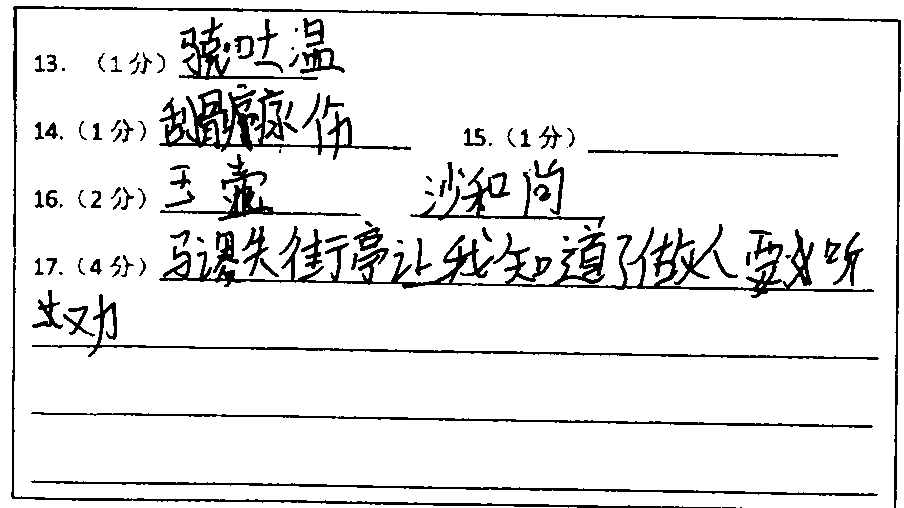 13. （1分）骁吐温
14.（1分）刮骨疗伤 15.（1分）
16.（2分）玉壶 沙和尚
17.（4分）马谡失街亭让我知道了做人要听
劝